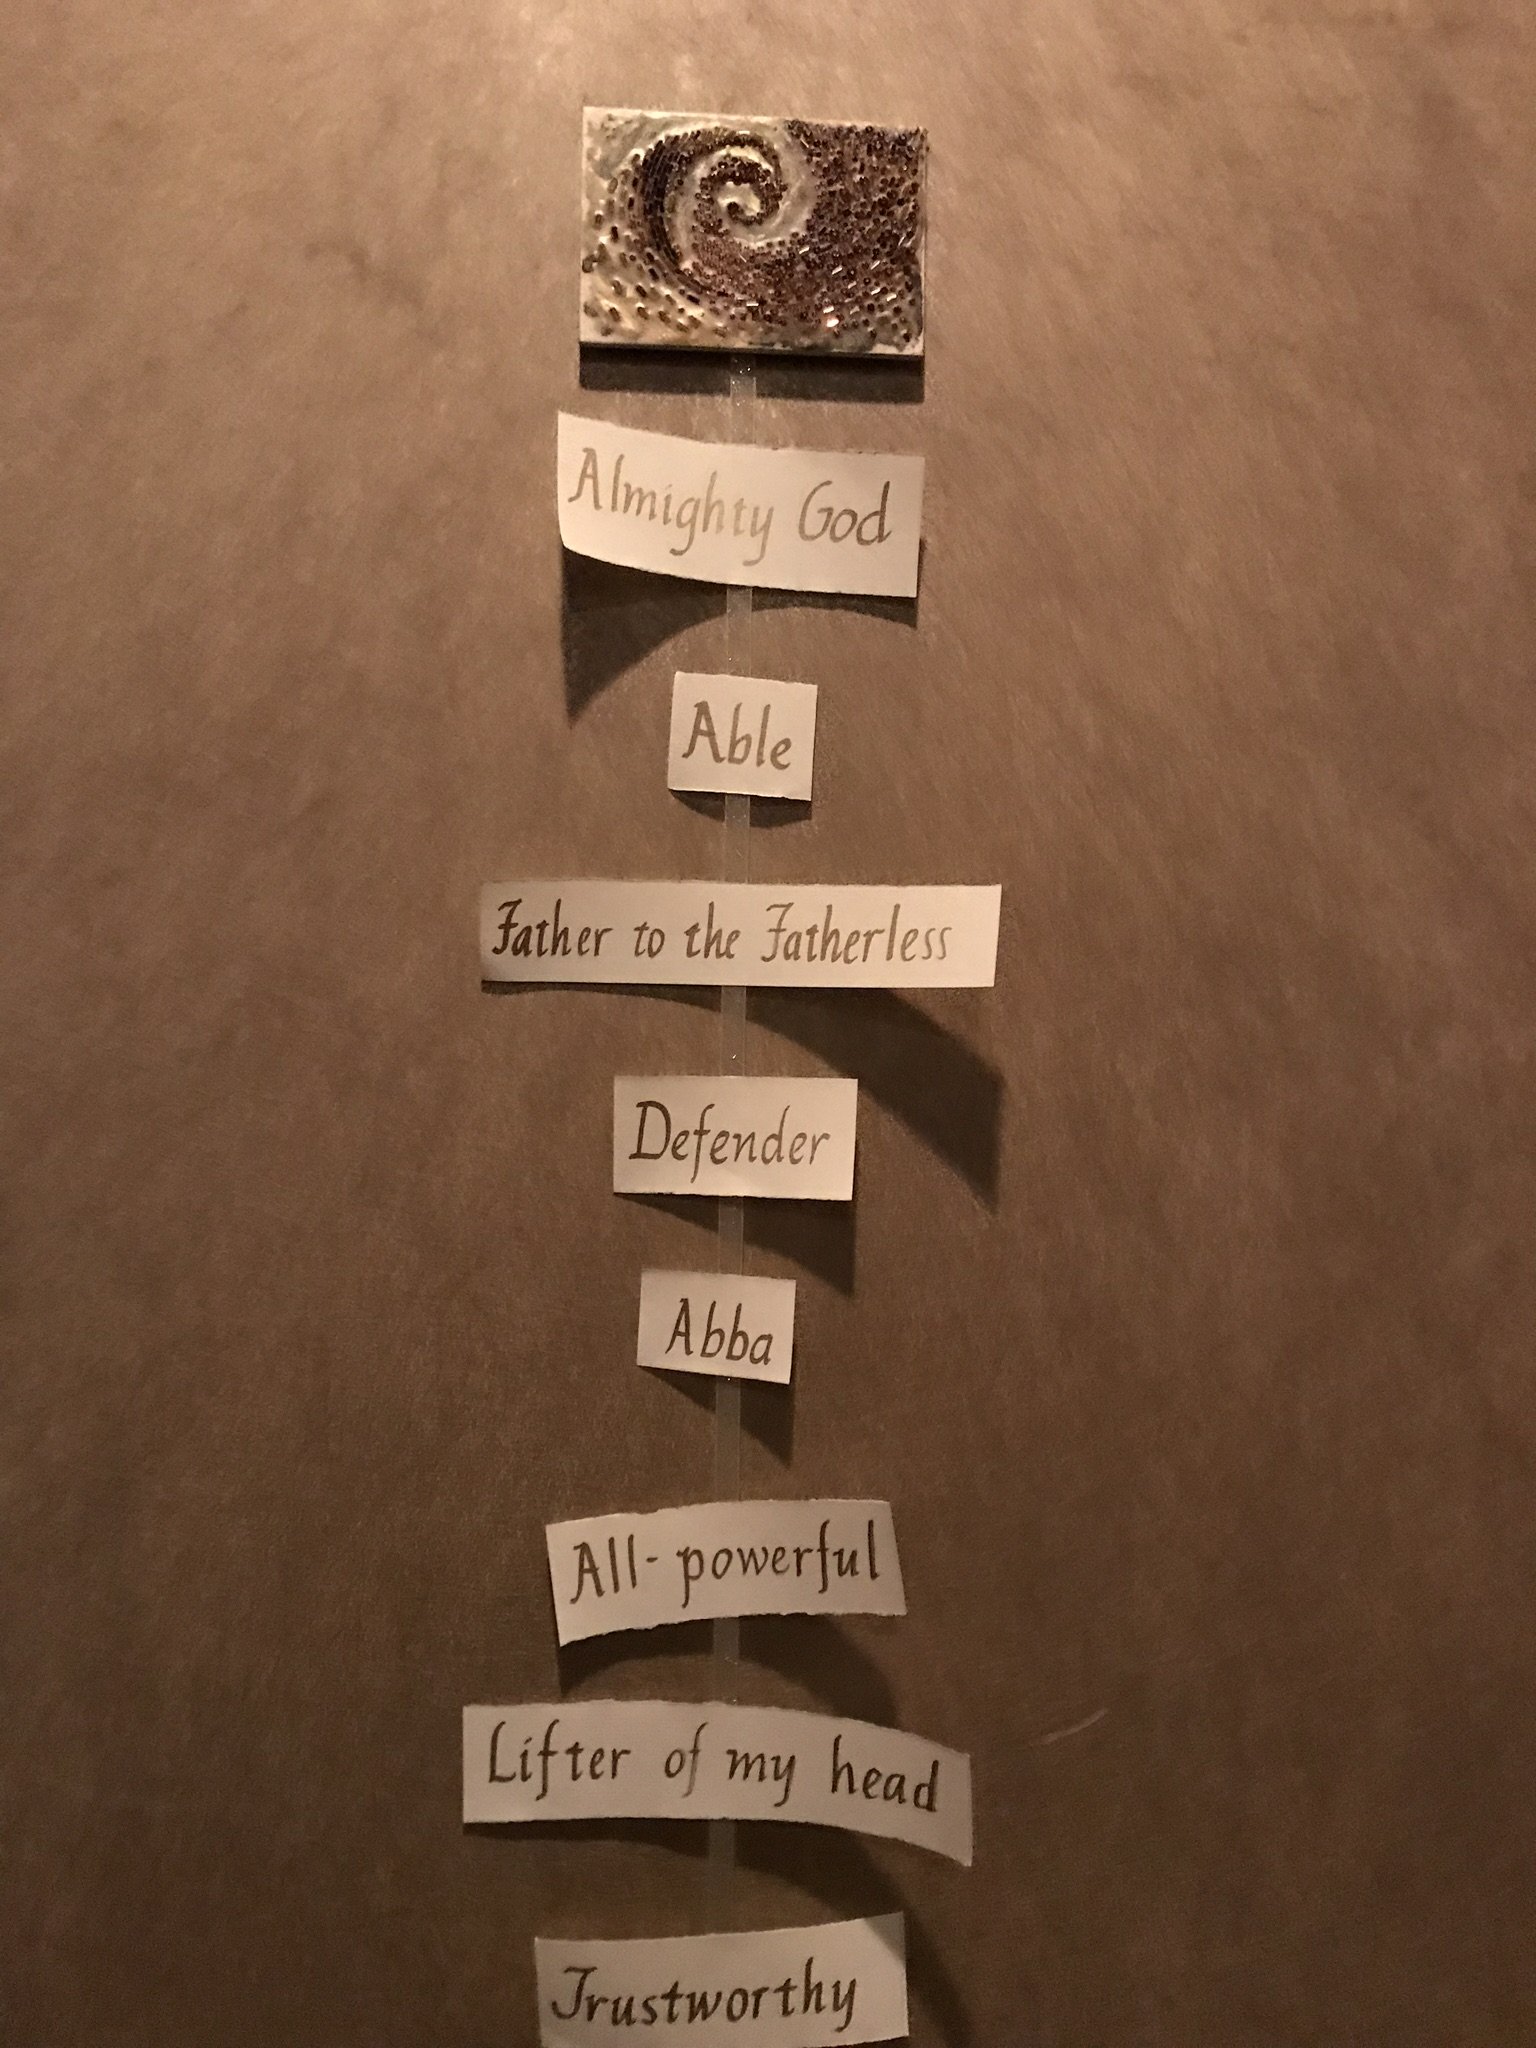 Almighty God
Able
Father to the Fatherless
Defender
Abba
All-powerful
Lifter of my head
Trustworthy